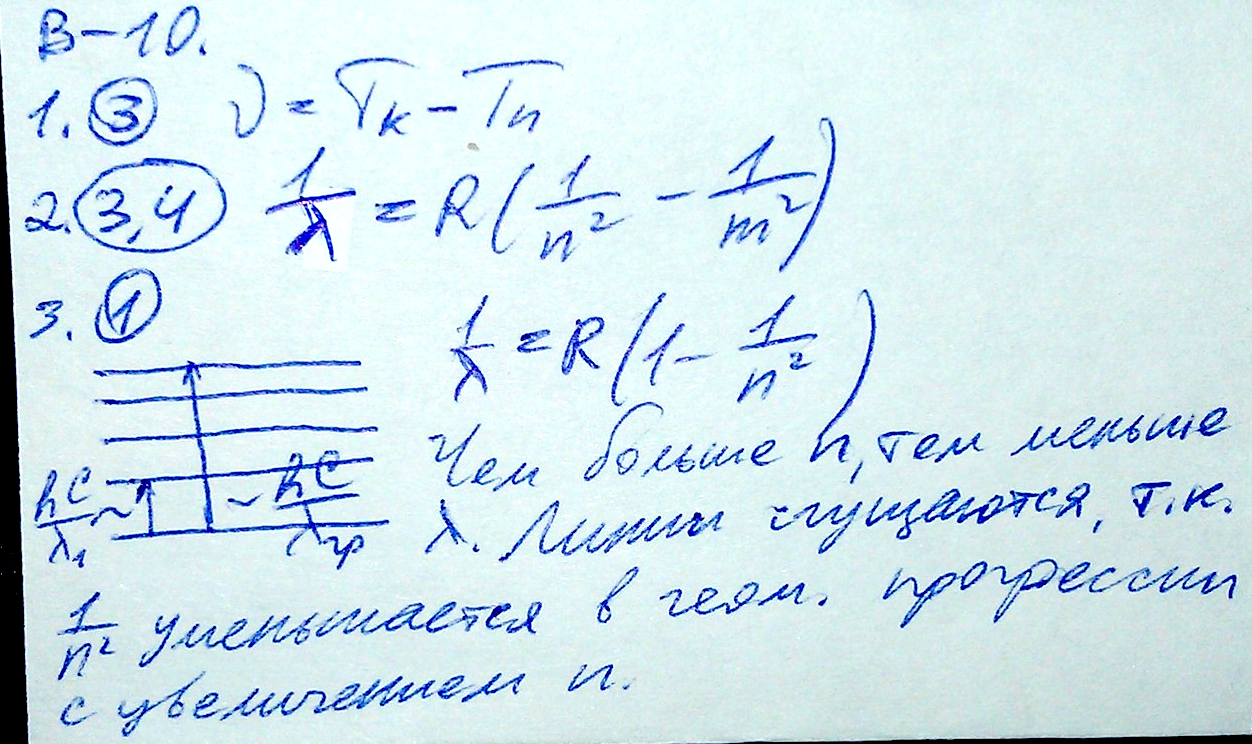 В-10.
1. ③ ν = Tк - Tn
2. 3,4 1/λ = R(1/n² - 1/m²)
3. ① 1/λ = R(1 - 1/n²)
Чем больше n, тем меньше
hc/λ₁ ~ ~ hc/λгр λ. Линии сгущаются, т.к.
1/n² уменьшается в геом. прогрессии
с увеличением n.